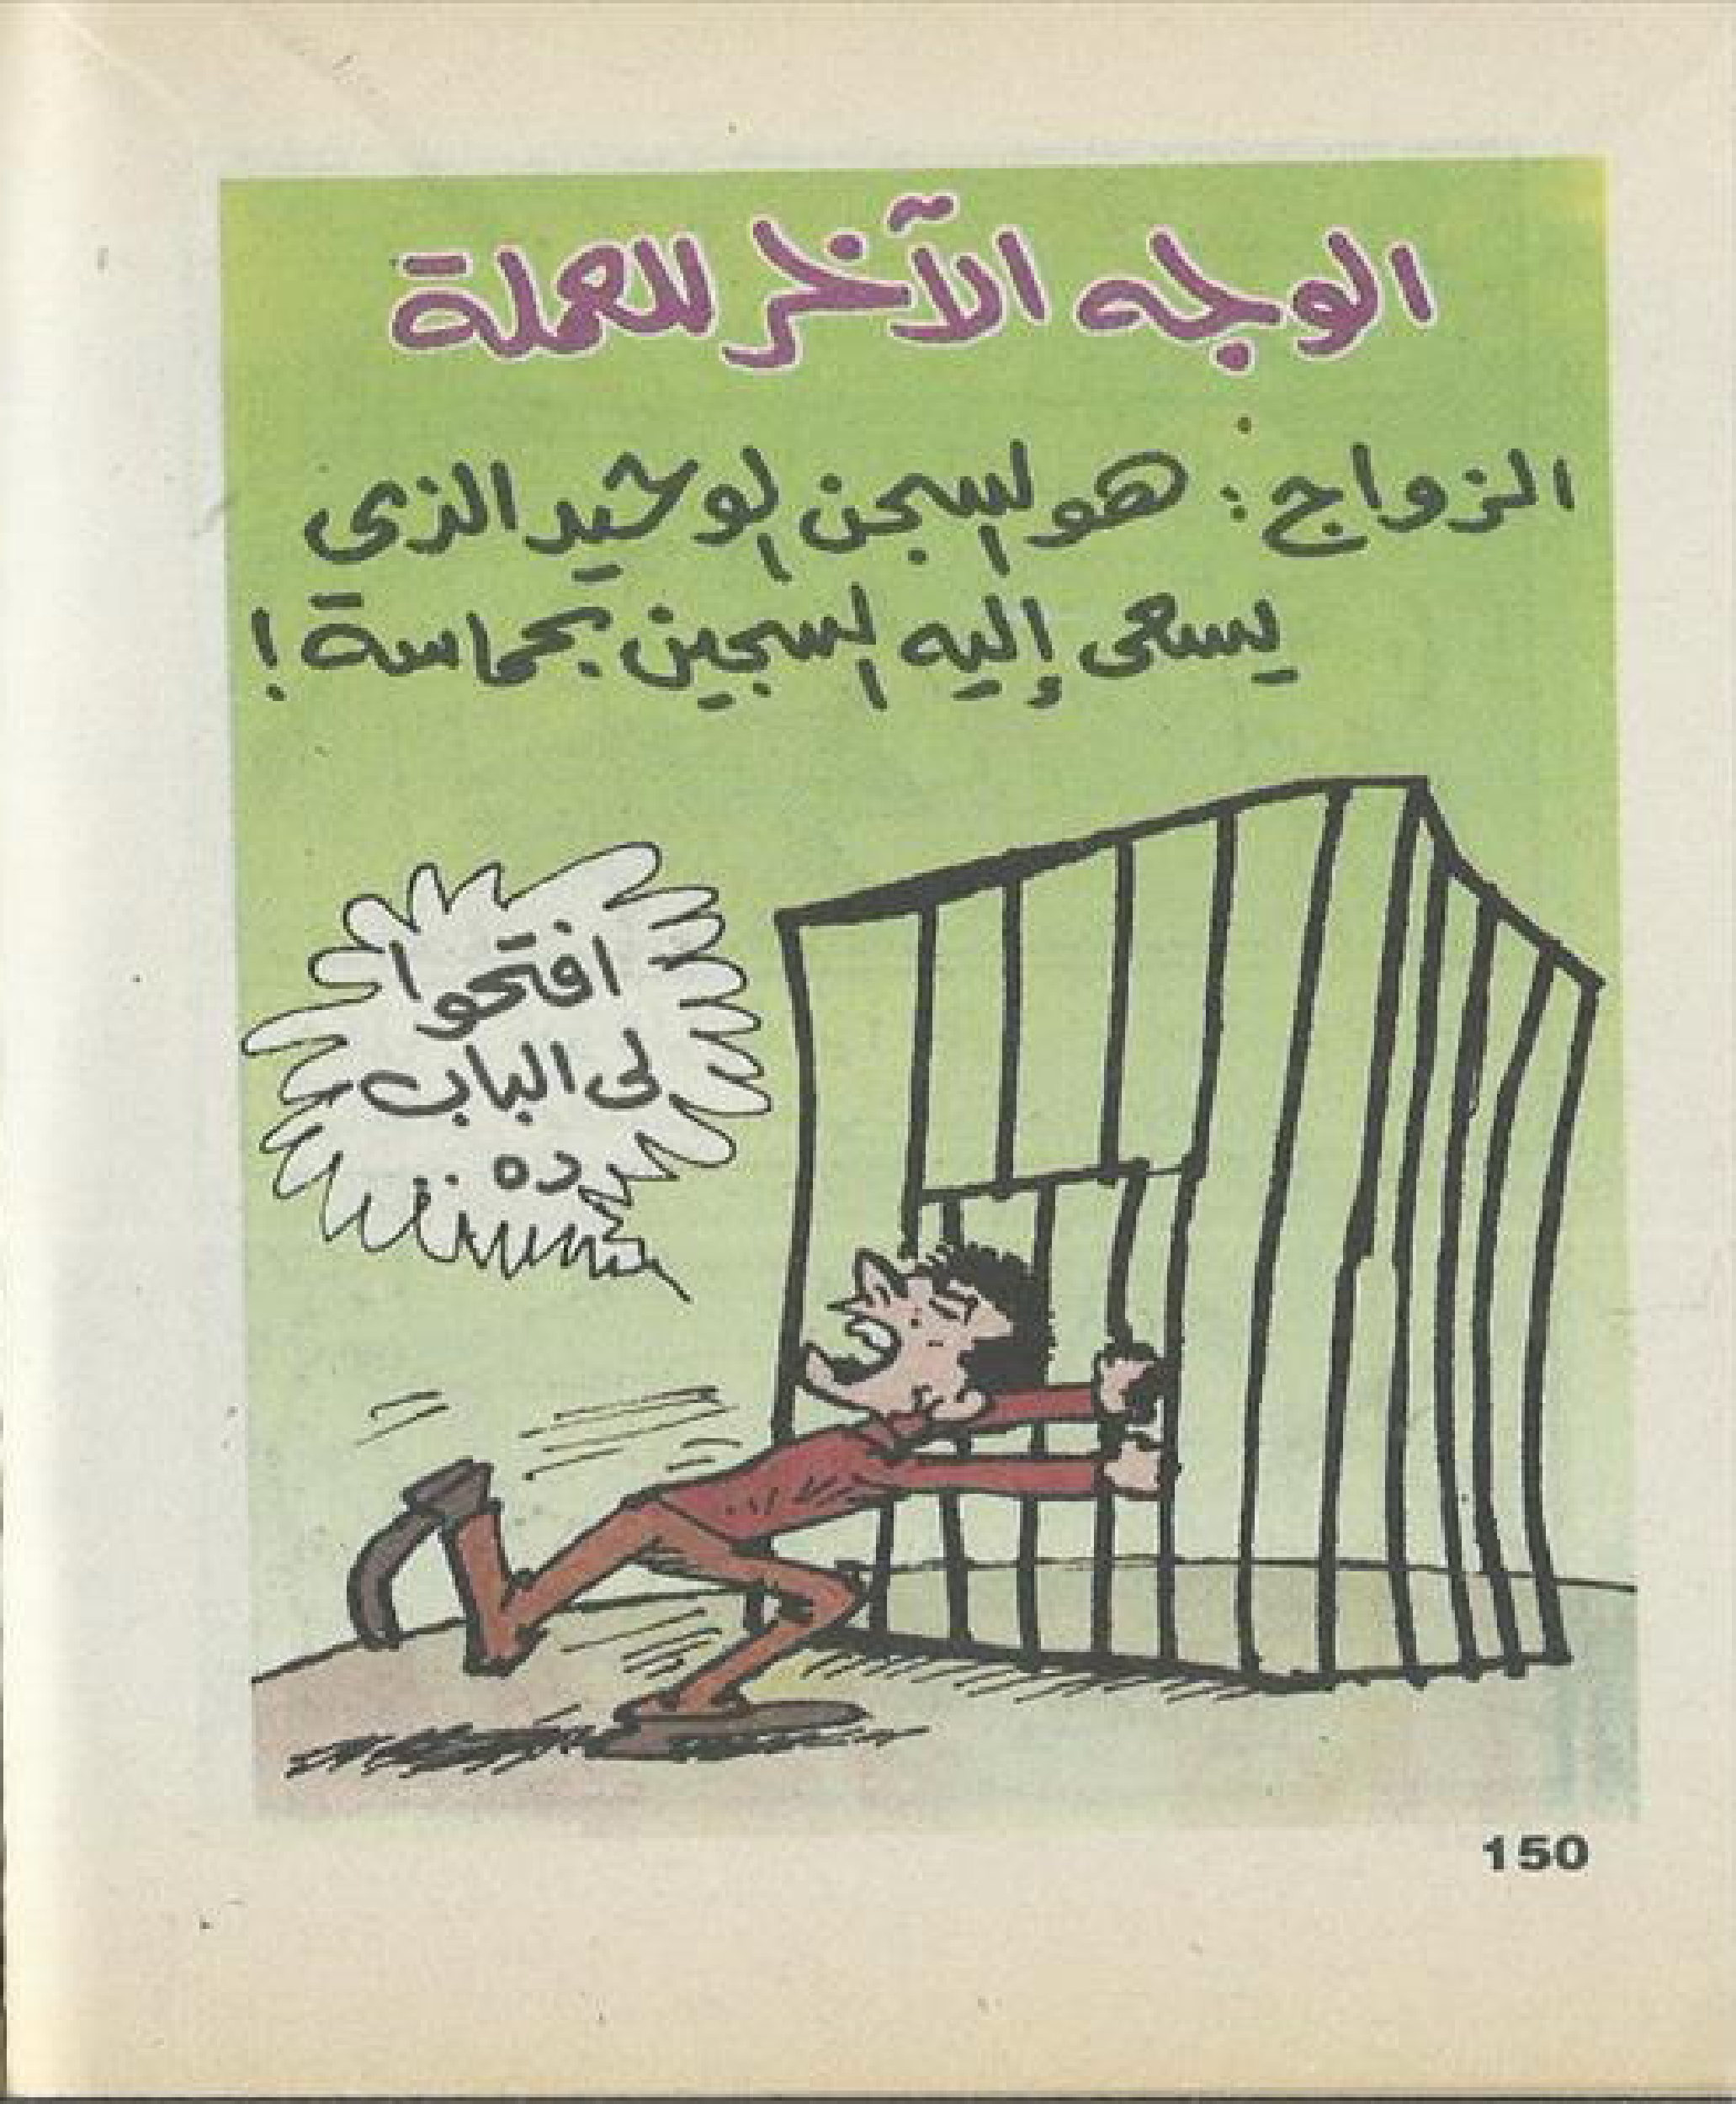 الوجه الآخر للعملة
الزواج : هو السجن الوحيد الذى
يسعى إليه السجين بحماسة !
افتحوا
لى الباب
ده
150